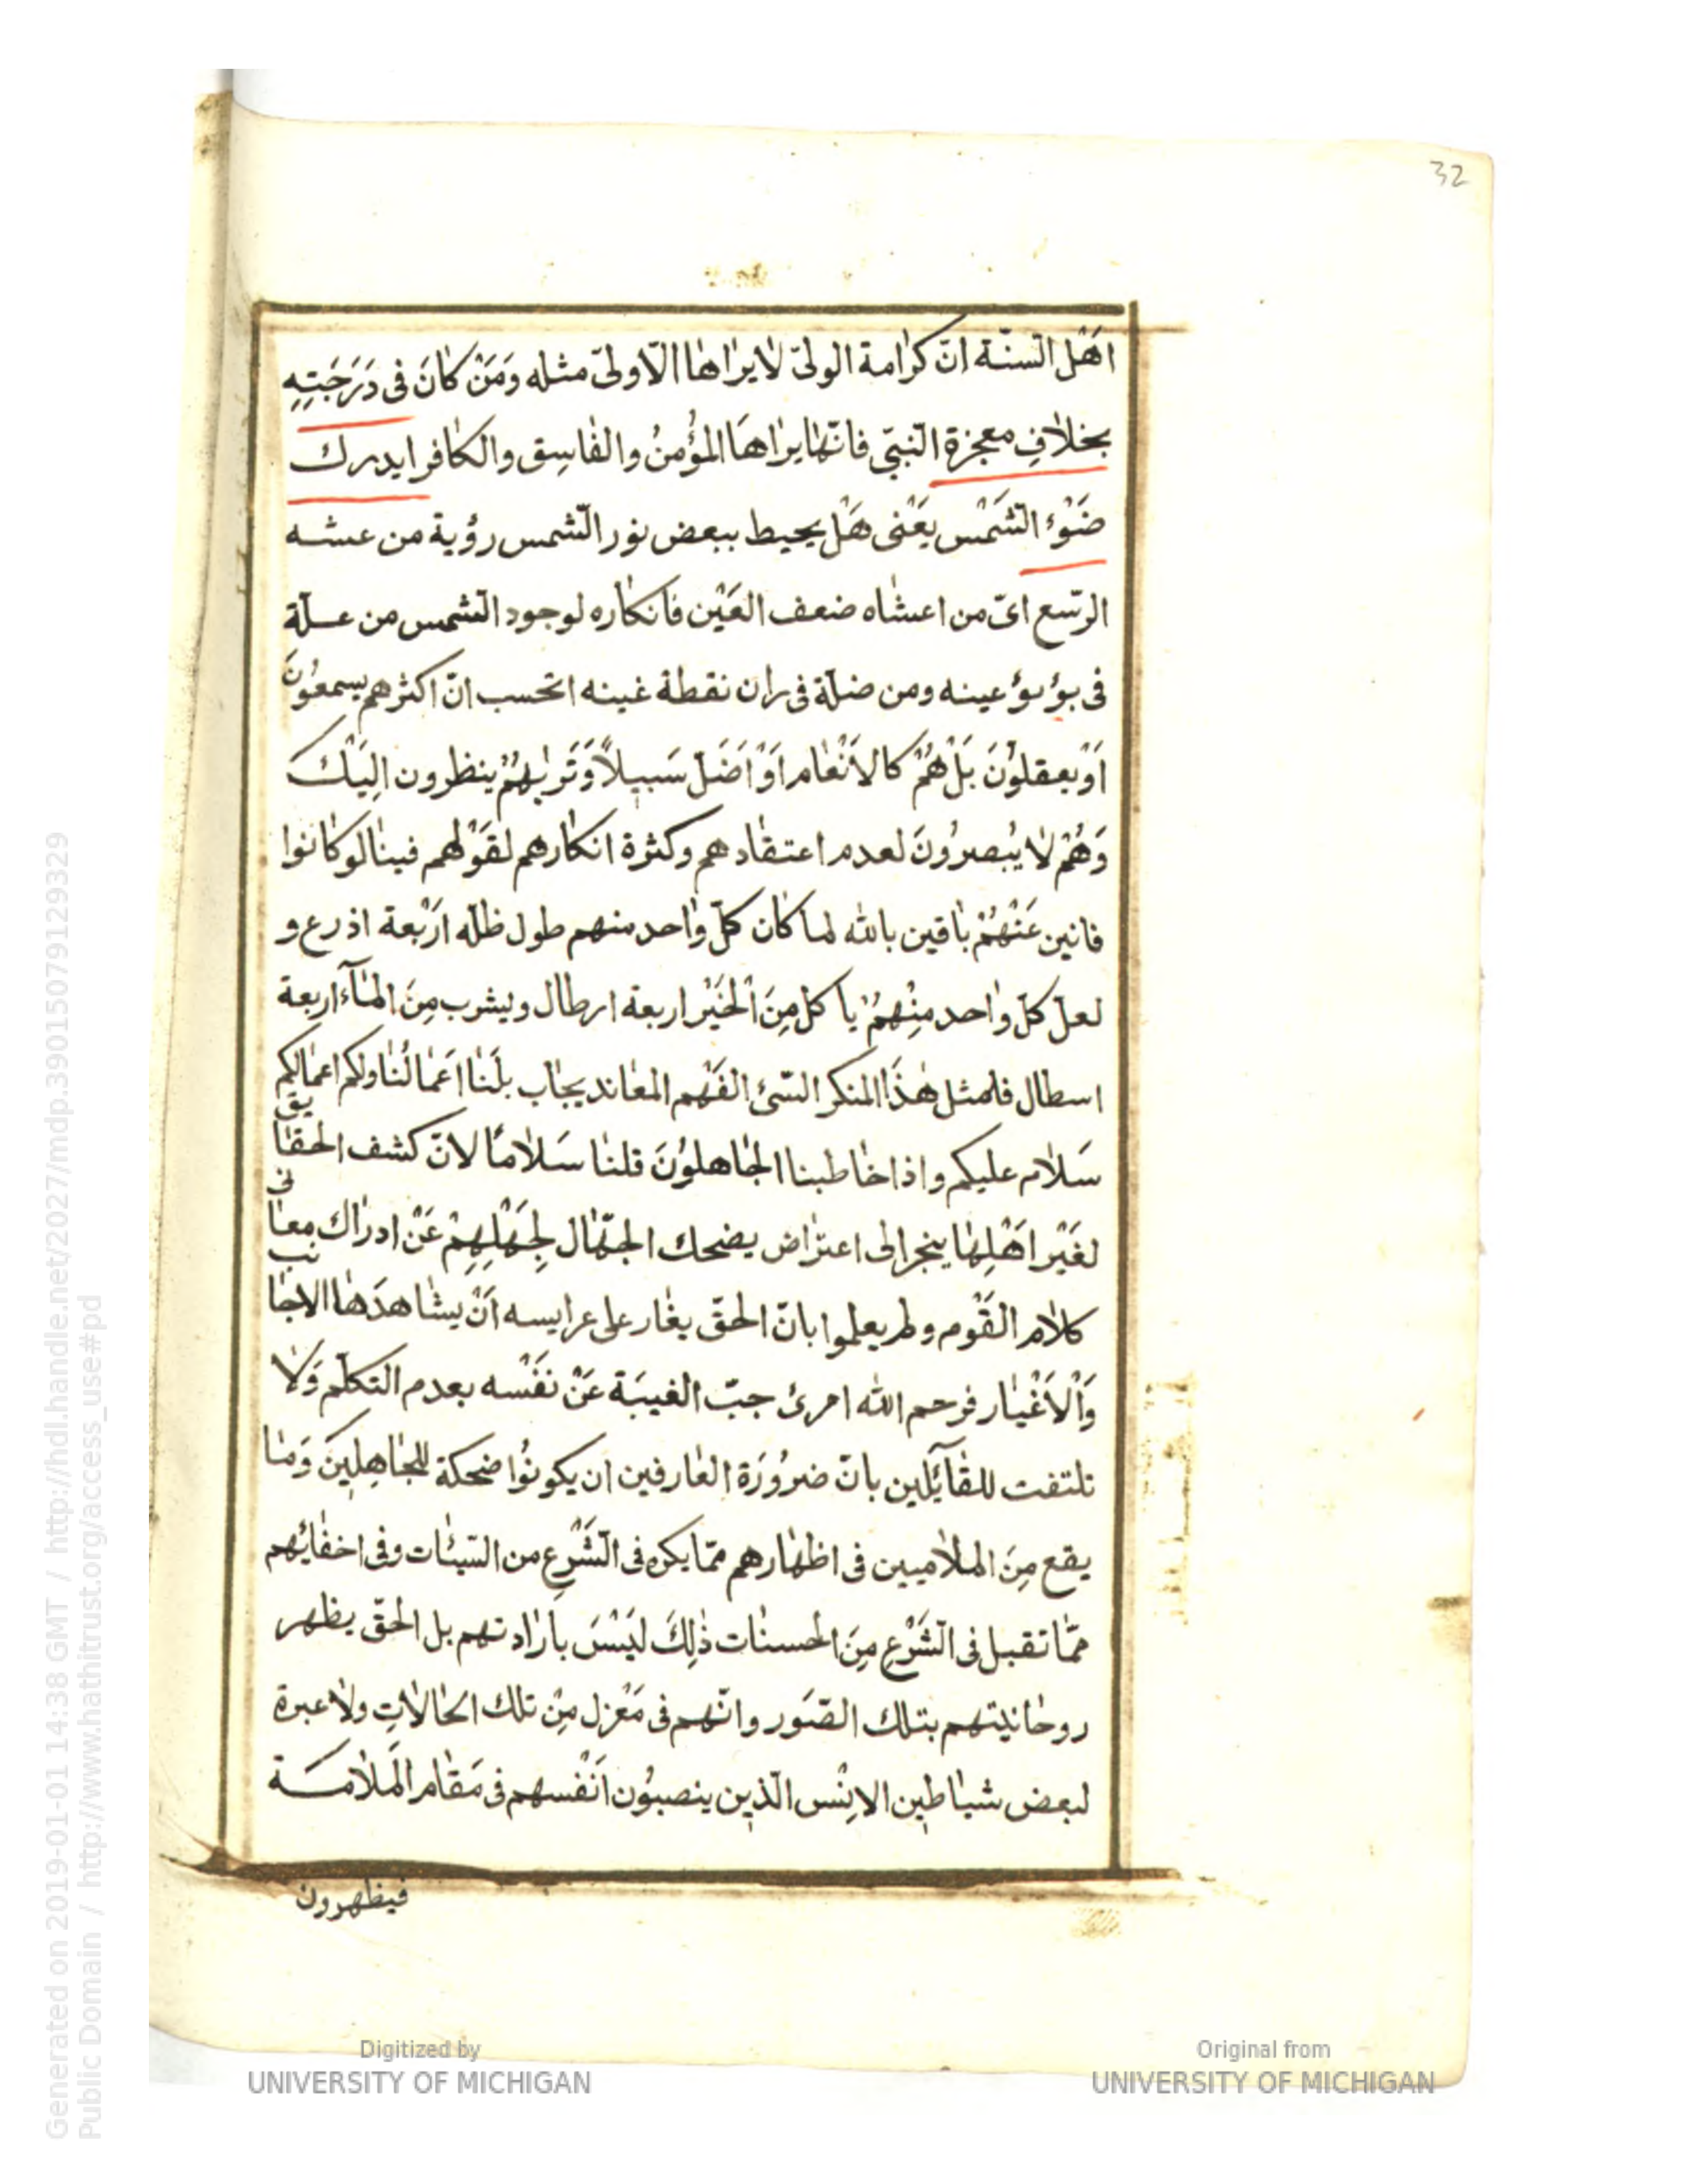 32
اَهْل السّنة انّ كرٰامة الولىّ لٰا يرٰاهٰا الّا ولىّ مثله وَمَنْ كٰانَ فى دَرَجَتِهِ
بخلٰافِ معجزة النّبىّ فانّهٰا يرٰاهَا المؤُمنُ والفٰاسِق والكٰافر ايدرك
ضَوْءُ الشّمْس يَعْنى هَلْ يحيط ببعض نور الشّمس رؤية من عشه
الرّسع اىّ من اعشٰاه ضعف العَيْن فانكٰاره لوجود الشّمس من علّة
فى بؤبؤ عينه ومن ضلّة فى ران نقطة غينه اتحسب انّ اكثرهم يسمعُونَ
اَوْ يعقلوُنَ بَلْ هُمْ كالاَنْعٰام اَوْ اَضَلّ سَبيلاً وَتَرٰيهُمْ ينظرون اِلَيْكَ
وَهُمْ لٰا يُبصرُونَ لعدم اعتقٰادهم وكثرة انكٰارهم لقَوْلهم فينٰا لو كٰانوا
فانين عَنْهُمْ بٰاقين بالله لما كٰان كلّ وٰاحد منهم طول ظلّه ارَبْعة اذرع و
لعلّ كلّ وٰاحد مِنْهُمْ ياكل مِنَ الْخَيْر اربعة ارطال ويشرب مِنَ المٰآء اربعة
اسطال فلمثل هٰذَا المنكر السّئ الفَهْم المعٰاند يجٰاب بلَنٰا اَعْمٰالُنٰا ولكم اعمٰالكم
سَلٰام عليكم واذا خٰاطبنا الجٰاهلوُنَ قلنٰا سَلٰامًا لانّ كشف الحقٰايق
لغَيْر اَهْلِهٰا ينجر الى اعترٰاض يضحك الجهّٰال لِجَهْلِهِمْ عَنْ ادرٰاك معٰانى
كلٰام القَوْم ولم يعلموا بانّ الحقّ يغٰار على عرايسه اَنْ يشٰاهدَهٰا الاجٰانب
وَالْاَغْيٰار فرحم الله امرئ جبّ الغيبَة عَنْ نَفْسه بعدم التكلّم وَلٰا
تلتفت للقٰآئلين بانّ ضرُورَة العٰارفين ان يكونُوا ضحكة للجٰاهِلينَ وَمٰا
يقع مِنَ الملٰاميين فى اظهٰارهم ممّا يكره فى الشَّرْعِ من السّيئٰات وفى اخفٰائهم
ممّا تقبل فى الشَّرْعِ مِنَ الحسنٰات ذٰلِكَ لَيْسَ بارٰادتهم بل الحقّ يظهر
روحٰانيتهم بتلك الصّوَر وانّهم فى مَعْزل مِنْ تلك الحٰالٰاتِ ولٰا عبرة
لبعض شيٰاطين الاِنْس الّذين ينصبوُن اَنْفسهم فى مَقٰام المَلٰامَة
فيظهرون
Generated on 2019-01-01 14:38 GMT / http://hdl.handle.net/2027/mdp.39015079129329
Public Domain / http://www.hathitrust.org/access_use#pd
Digitized by
UNIVERSITY OF MICHIGAN
Original from
UNIVERSITY OF MICHIGAN